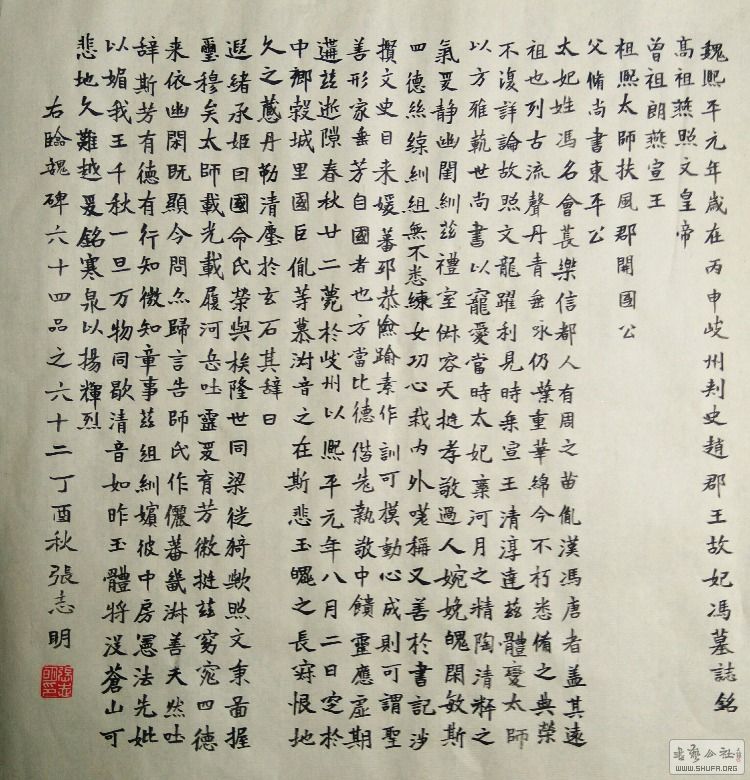 魏熙平元年歲在丙申岐州刾史趙郡王故妃馮墓誌銘
高祖燕照文皇帝
曾祖朗燕宣王
祖熙太師扶風郡開國公
父脩尚書東平公
太妃姓馮名會萇樂信都人有周之苗胤漢馮唐者蓋其遠
祖也列古流聲丹青垂永仍葉重華綿今不朽悉俻之典榮
不復詳論故照文龍躍利見時乗宣王清淳達茲體慶太師
以方雅軌世尚書以寵愛當時太妃稟河月之精陶清粹之
氣爰静幽閨紃茲禮室俶容天挺孝敬過人婉娩閑敏斯
四德絲綜紃組無不悉練女功心栽内外嗟稱又善於書記涉
攬文史目来媛蕃邳恭儉踰素作訓可摸動心成則可謂聖
善形家垂芳自國者也方當比德偕先執敬中饋靈應虛期
遘茲逝隙春秋廿二薨於岐州以熙平元年八月二日窆於
中鄉穀城里國臣胤等慕淑音之在斯悲玉魄之長寐恨地
久之薦丹勒清塵於玄石其辞曰
遐緒承姬曰國命氏榮與桟隆世同梁徙猗歟照文秉啚握
璽穆矣太師載光載履河岳吐靈爰育芳徽挺茲窈窕四德
来依幽閑既顯今問亦歸言告師氏作儷蕃畿淋善天然吐
辞斯芳有德有行知微知章事茲組紃嬪彼中房憲法先妣
以媚我王千秋一旦万物同歇清音如昨玉體将没蒼山可
悲地久難越爰銘寒泉以揚輝烈
右臨魏碑六十四品之六十二丁酉秋張志明
張志明印
書藝公社
WWW.SHUFA.ORG